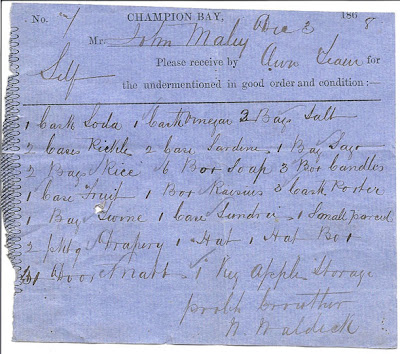 No. 7 CHAMPION BAY, Dec 3 1868
Mr. John Maley
Please receive by Own Team for
Self the undermentioned in good order and condition :—
1 Cask Soda 1 Cask Vinegar 3 Bags Salt
2 Cases Pickle 2 Case Sardine 1 Bag Sago
2 Bags Rice 6 Box Soap 3 Box Candles
1 Case Fruit 1 Box Raisins 3 Cask Porter
1 Bag Twine 1 Case Sundries 1 Small parcel
2 pkg Drapery 1 Hat 1 Hat Box
Door Matt 1 Keg Apple Storage
W Waldeck